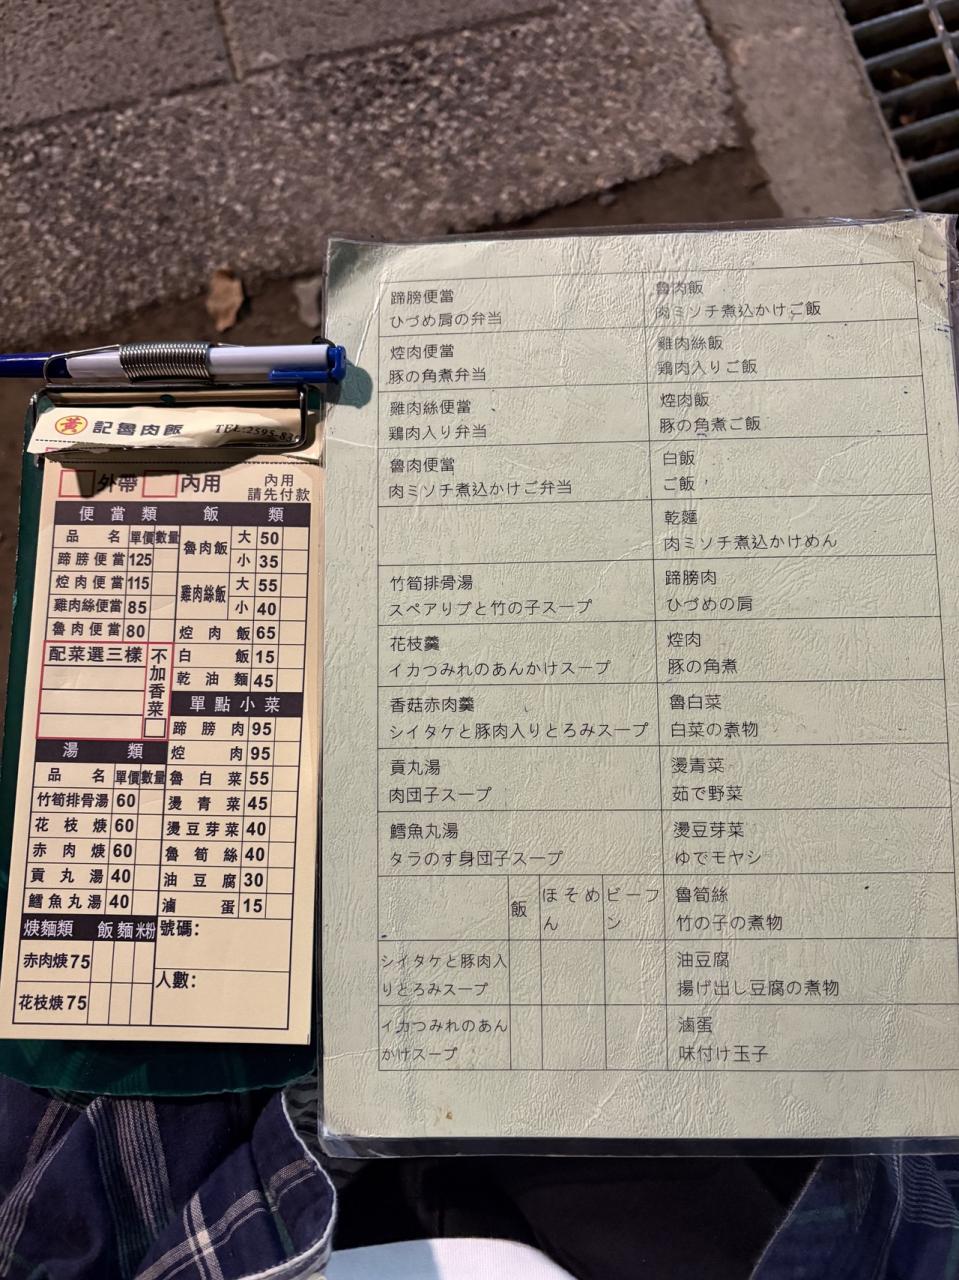 黃 記魯肉飯 TEL:2595-83
外帶 內用 內用
請先付款
便當類
品名 單價 數量
蹄膀便當 125
焢肉便當 115
雞肉絲便當 85
魯肉便當 80
配菜選三樣
不加香菜
飯類
魯肉飯 大 50
小 35
雞肉絲飯 大 55
小 40
焢肉飯 65
白飯 15
乾油麵 45
單點小菜
蹄膀肉 95
焢肉 95
魯白菜 55
燙青菜 45
燙豆芽菜 40
魯筍絲 40
油豆腐 30
滷蛋 15
湯類
品名 單價 數量
竹筍排骨湯 60
花枝焿 60
赤肉焿 60
貢丸湯 40
鱈魚丸湯 40
焿麵類 飯 麵 米粉
赤肉焿 75
花枝焿 75
號碼:
人數:
蹄膀便當
ひづめ肩の弁当
焢肉便當
豚の角煮弁当
雞肉絲便當
鶏肉入り弁当
魯肉便當
肉ミソチ煮込かけご弁当
竹筍排骨湯
スペアリブと竹の子スープ
花枝羹
イカつみれのあんかけスープ
香菇赤肉羹
シイタケと豚肉入りとろみスープ
貢丸湯
肉団子スープ
鱈魚丸湯
タラのす身団子スープ
飯 ほそめん ビーフン
シイタケと豚肉入
りとろみスープ
イカつみれのあん
かけスープ
魯肉飯
肉ミソチ煮込かけご飯
雞肉絲飯
鶏肉入りご飯
焢肉飯
豚の角煮ご飯
白飯
ご飯
乾麵
肉ミソチ煮込かけめん
蹄膀肉
ひづめの肩
焢肉
豚の角煮
魯白菜
白菜の煮物
燙青菜
茹で野菜
燙豆芽菜
ゆでモヤシ
魯筍絲
竹の子の煮物
油豆腐
揚げ出し豆腐の煮物
滷蛋
味付け玉子